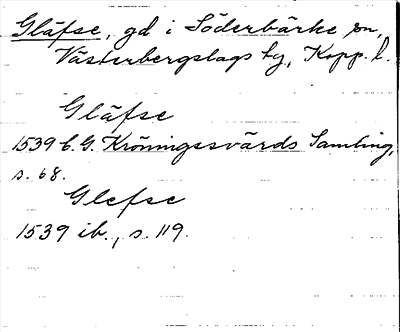 Gläfse, gd i Söderbärke sn,
Västerbergslags by, Kopp. l.
Gläfse
1539 C. G. Kröningssvärds Samling,
s. 68.
Glefse
1539 ib., s. 119.